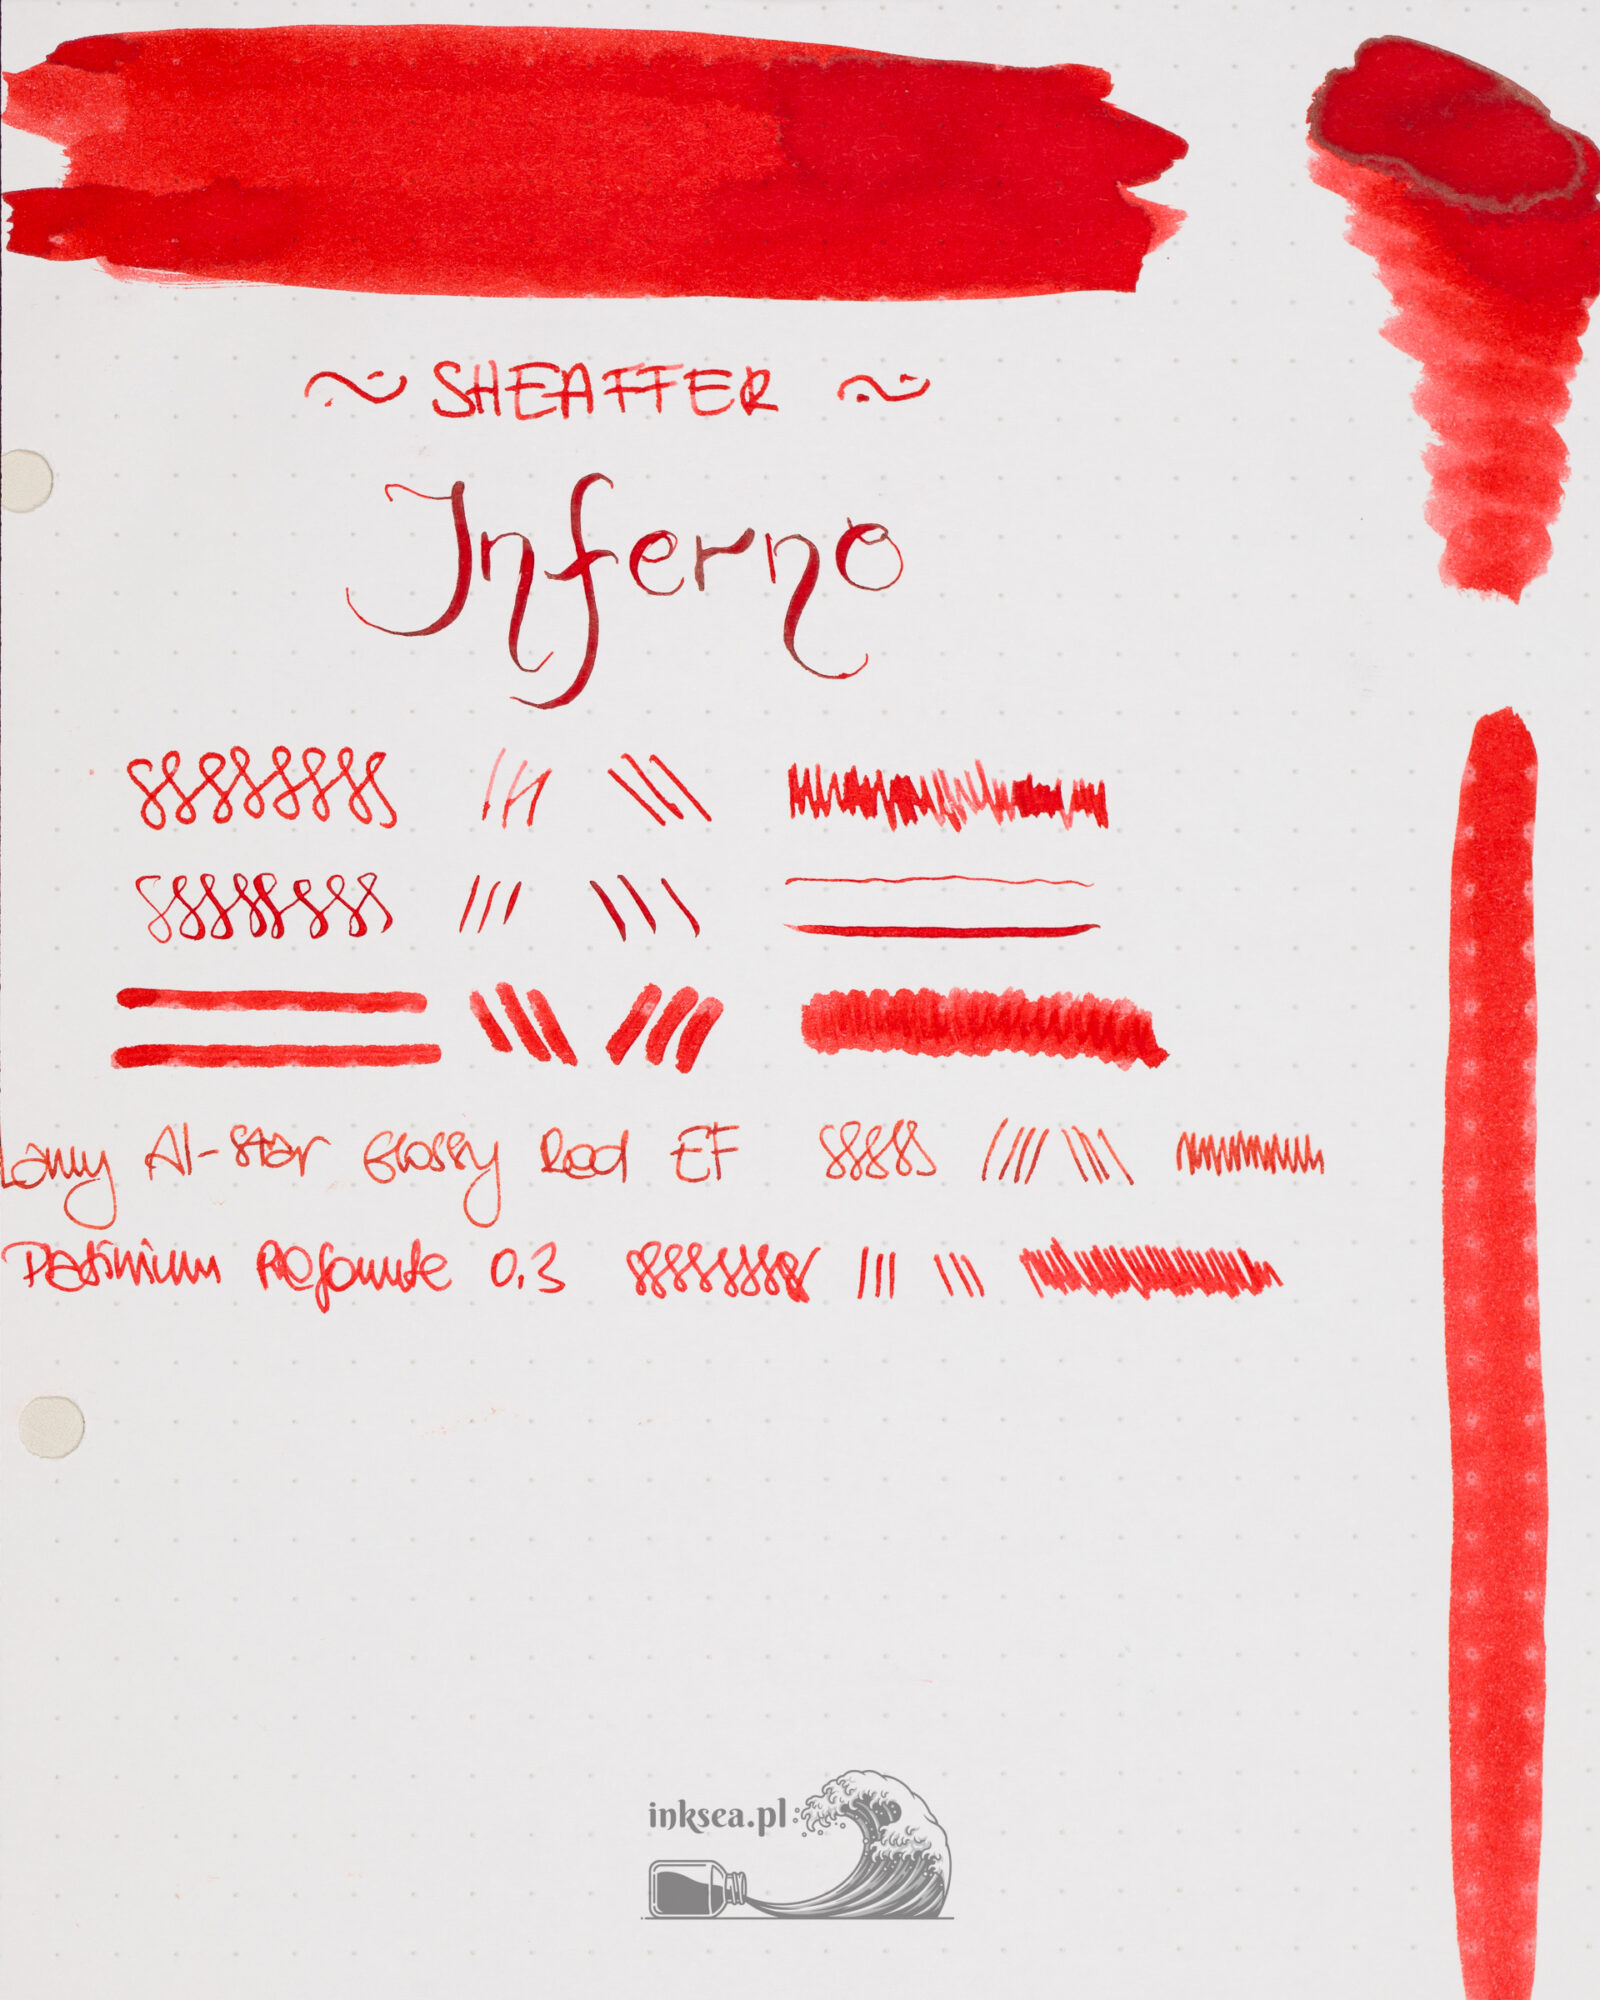 ~ SHEAFFER ~
Inferno
Lamy Al-Star Glossy Red EF
Platinium Prefounte 0.3
inksea.pl